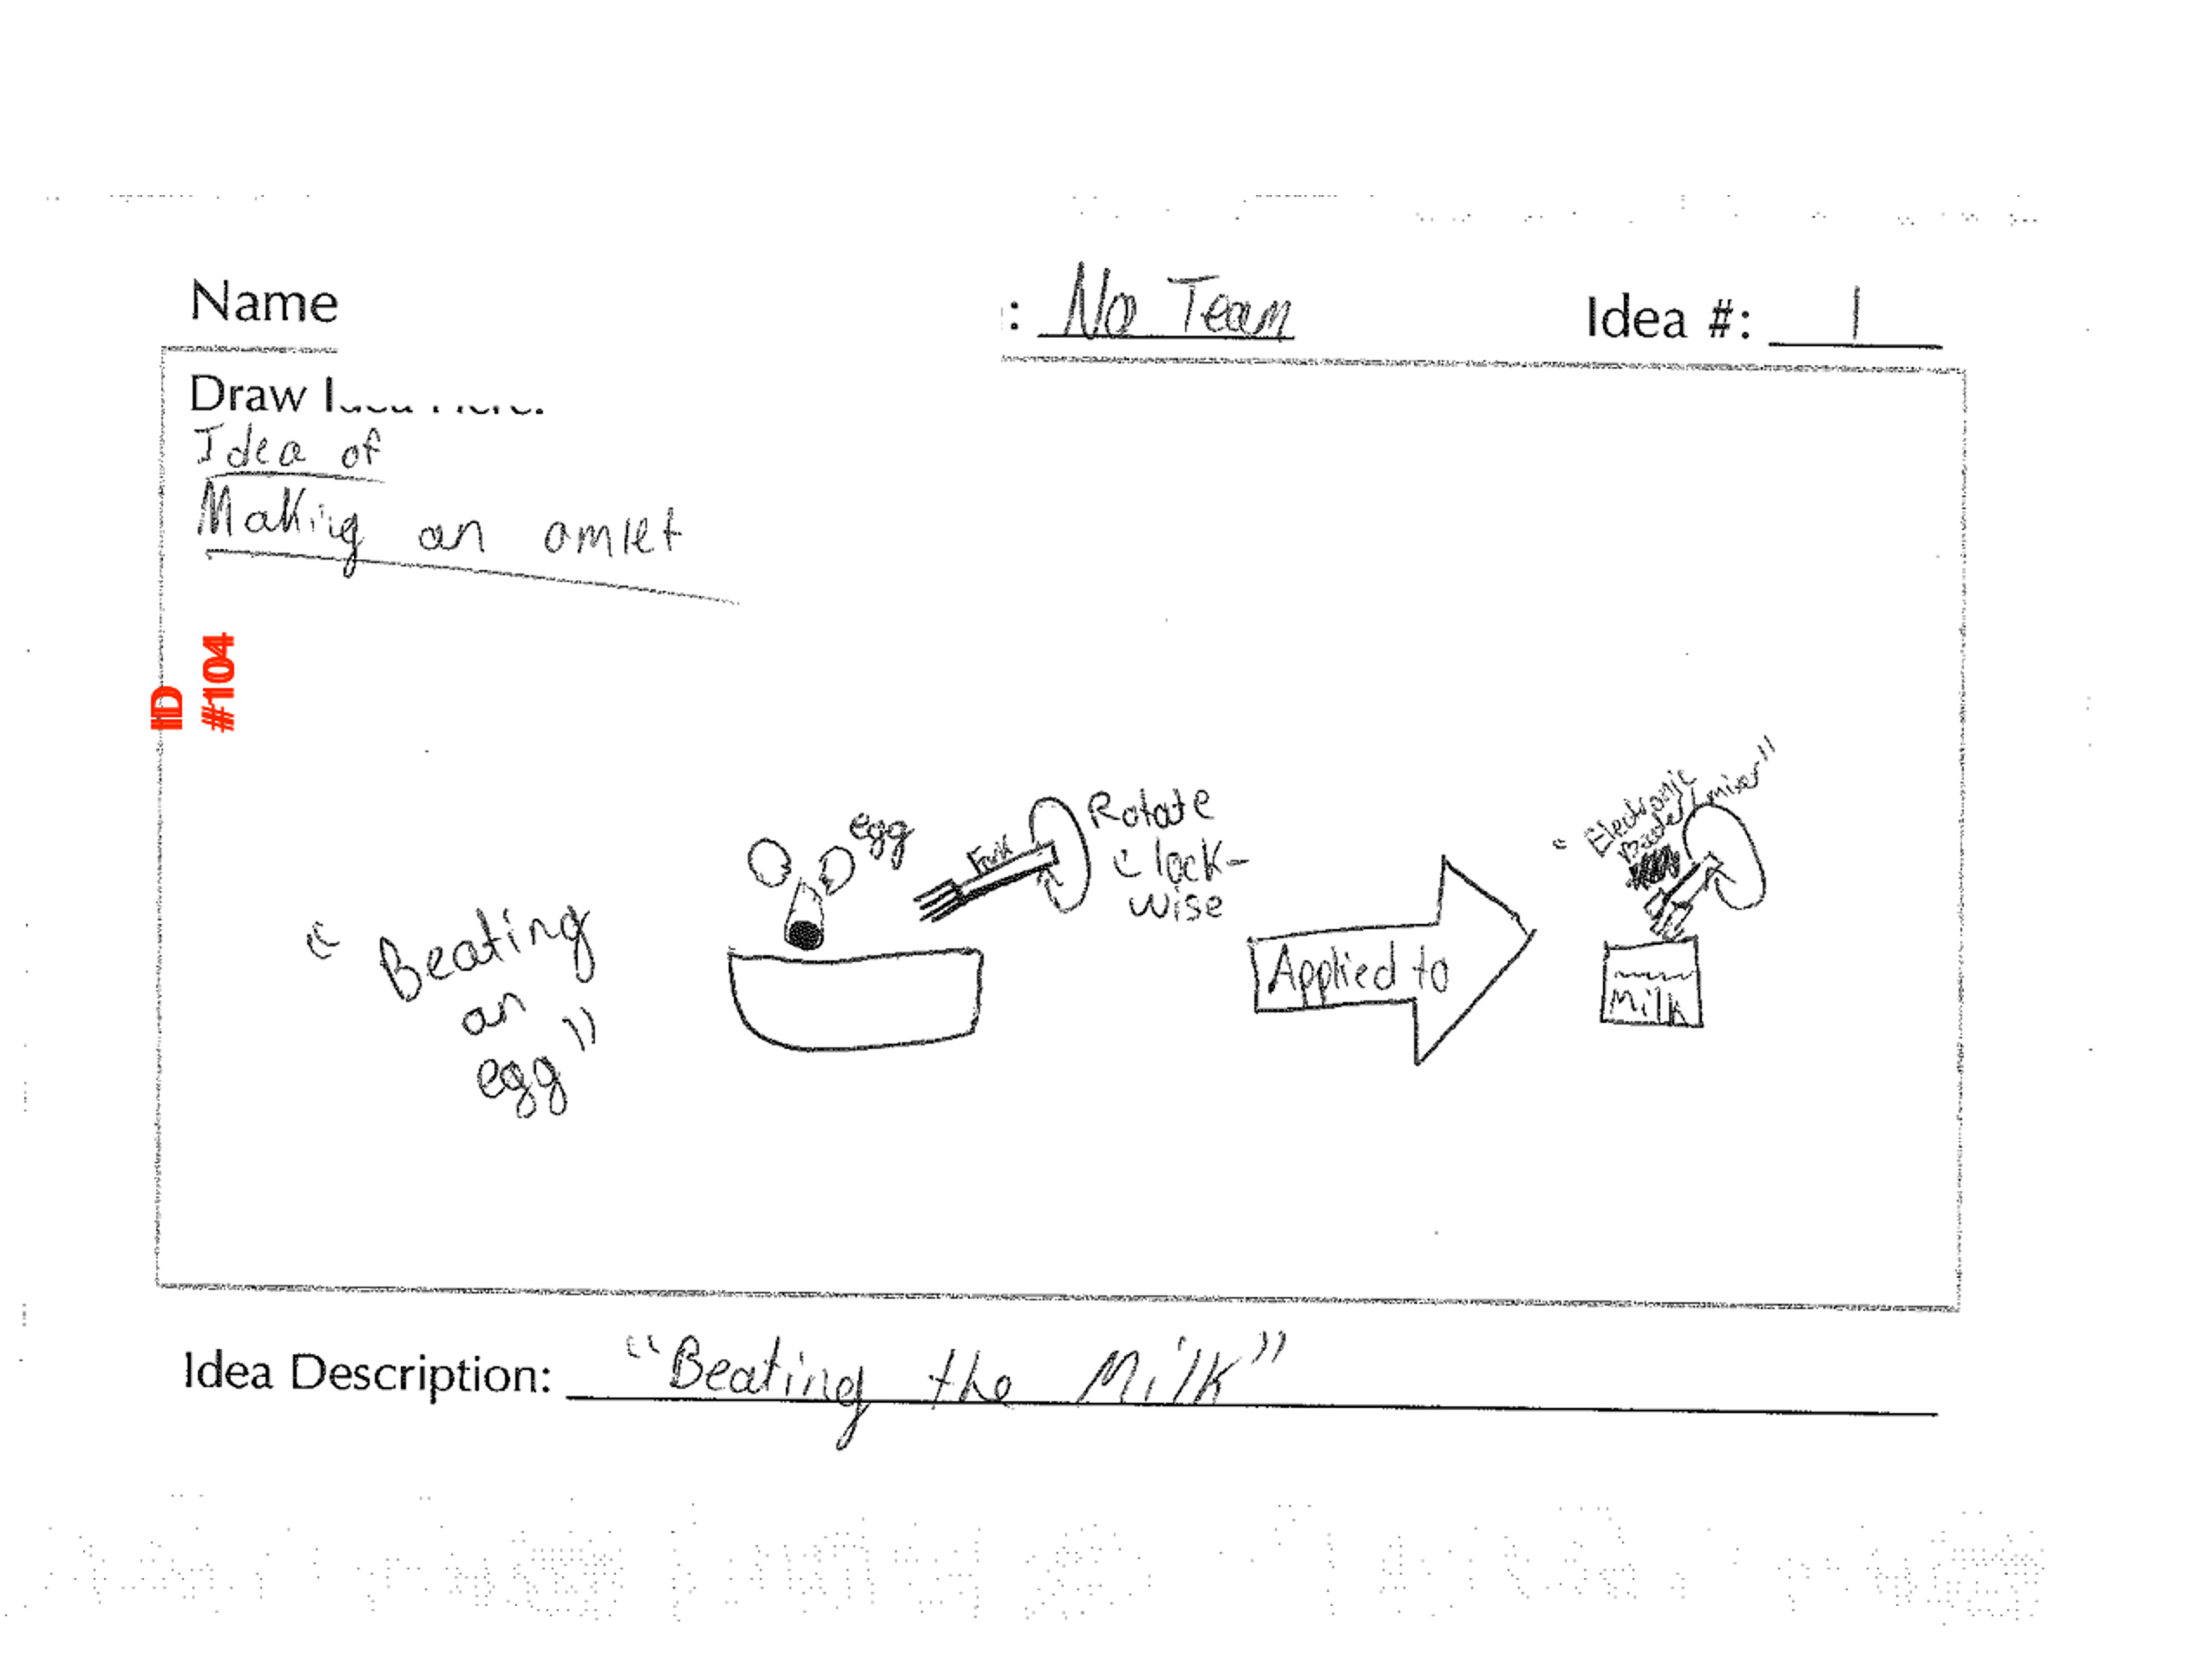 Name
: No Team
Idea #: 1
Idea of
Making an amlet
ID
#104
"Beating
an
egg"
egg
Fork
Rotate
clock-
wise
Applied to
"Electronic
mixer"
Milk
Idea Description: "Beating the Milk"